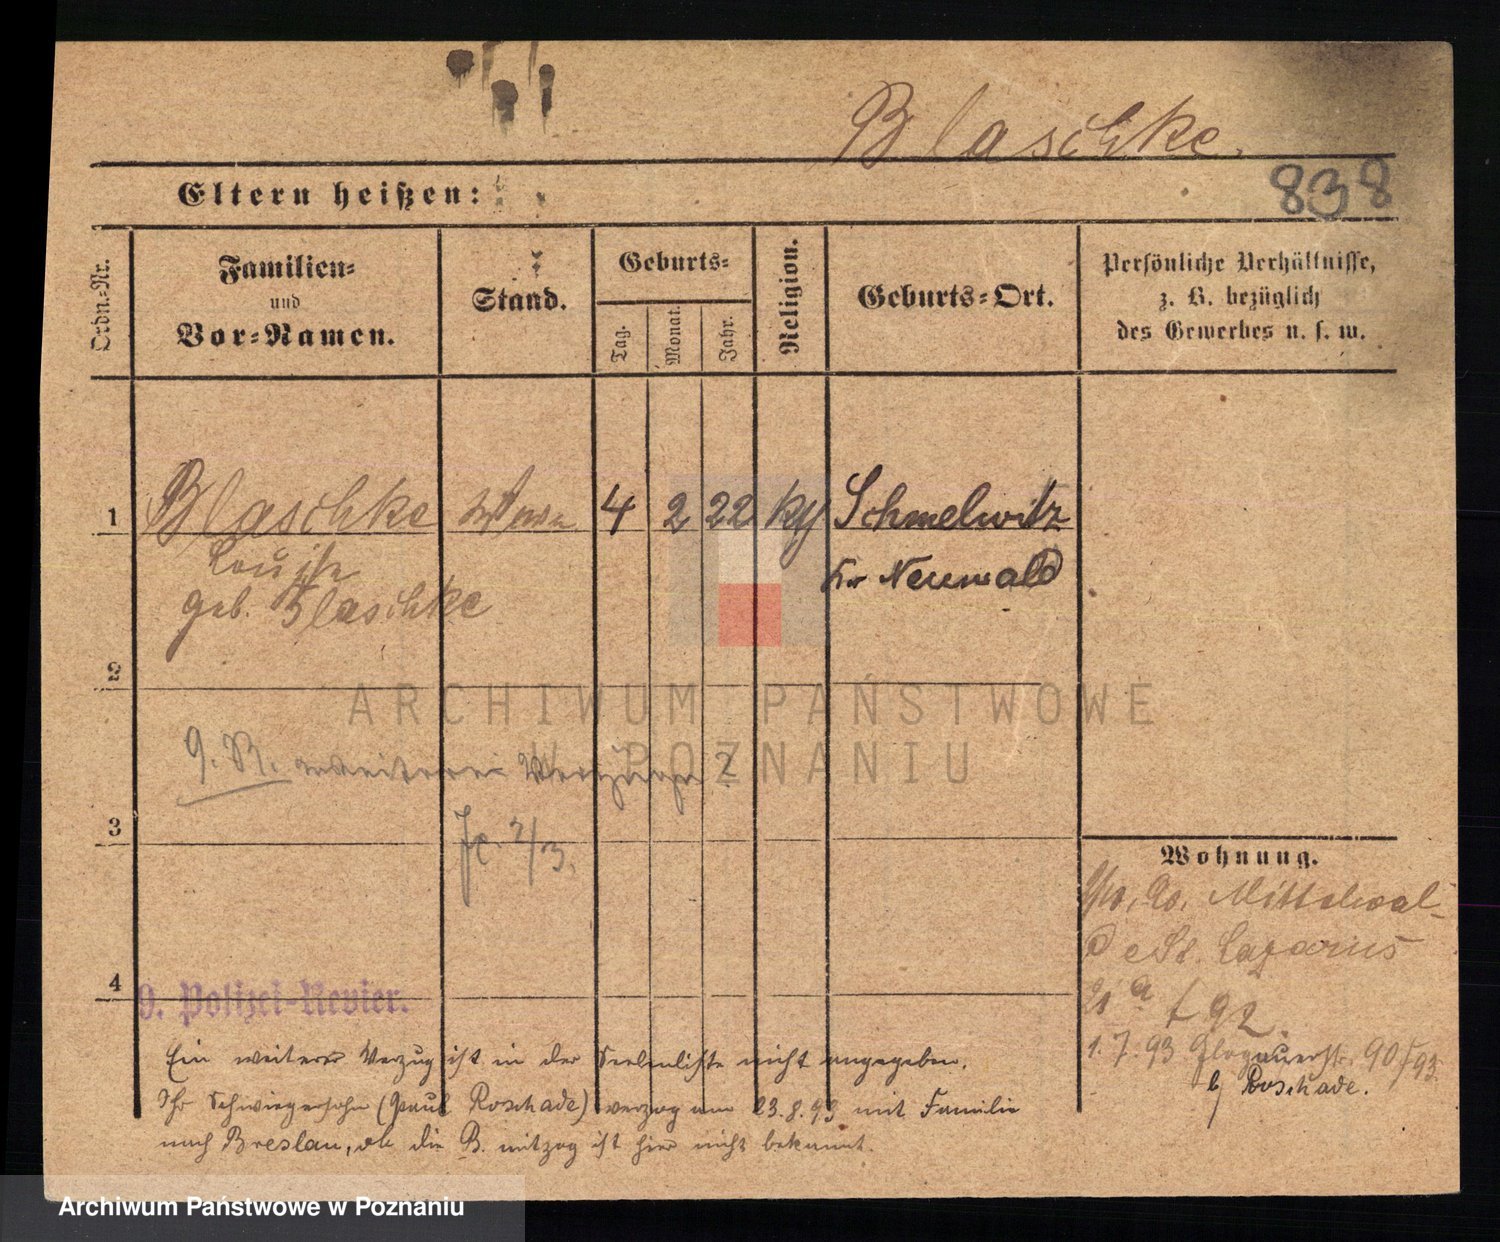 Blaschke.
838
Eltern heißen:
Ordn.-Nr.
Familien-
und
Vor-Namen.
Stand.
Geburts-
Tag.
Monat.
Jahr.
Religion.
Geburts-Ort.
Persönliche Verhältnisse,
z. B. bezüglich
des Gewerbes u. s. w.
1
Blaschke
4 2 22
Schmelwitz
Louise
geb. Blaschke
Kr Neumald
2
ARCHIWUM PAŃSTWOWE
W POZNANIU
9. R. weiterer Verzug ?
3
Wohnung.
Mittelwal-
de St. Lazarus
4
9. Polizei-Revier.
21 a 92.
1.7.93 Glogauerstr. 90 93
b/ Roschade.
Ein weiterer Verzug ist in der Seelenliste nicht angegeben.
Ihr Schwiegersohn (Paul Roschade) verzog am 23.8.93 mit Familie
nach Breslau, ob die B. mitzog ist hier nicht bekannt.
Archiwum Państwowe w Poznaniu